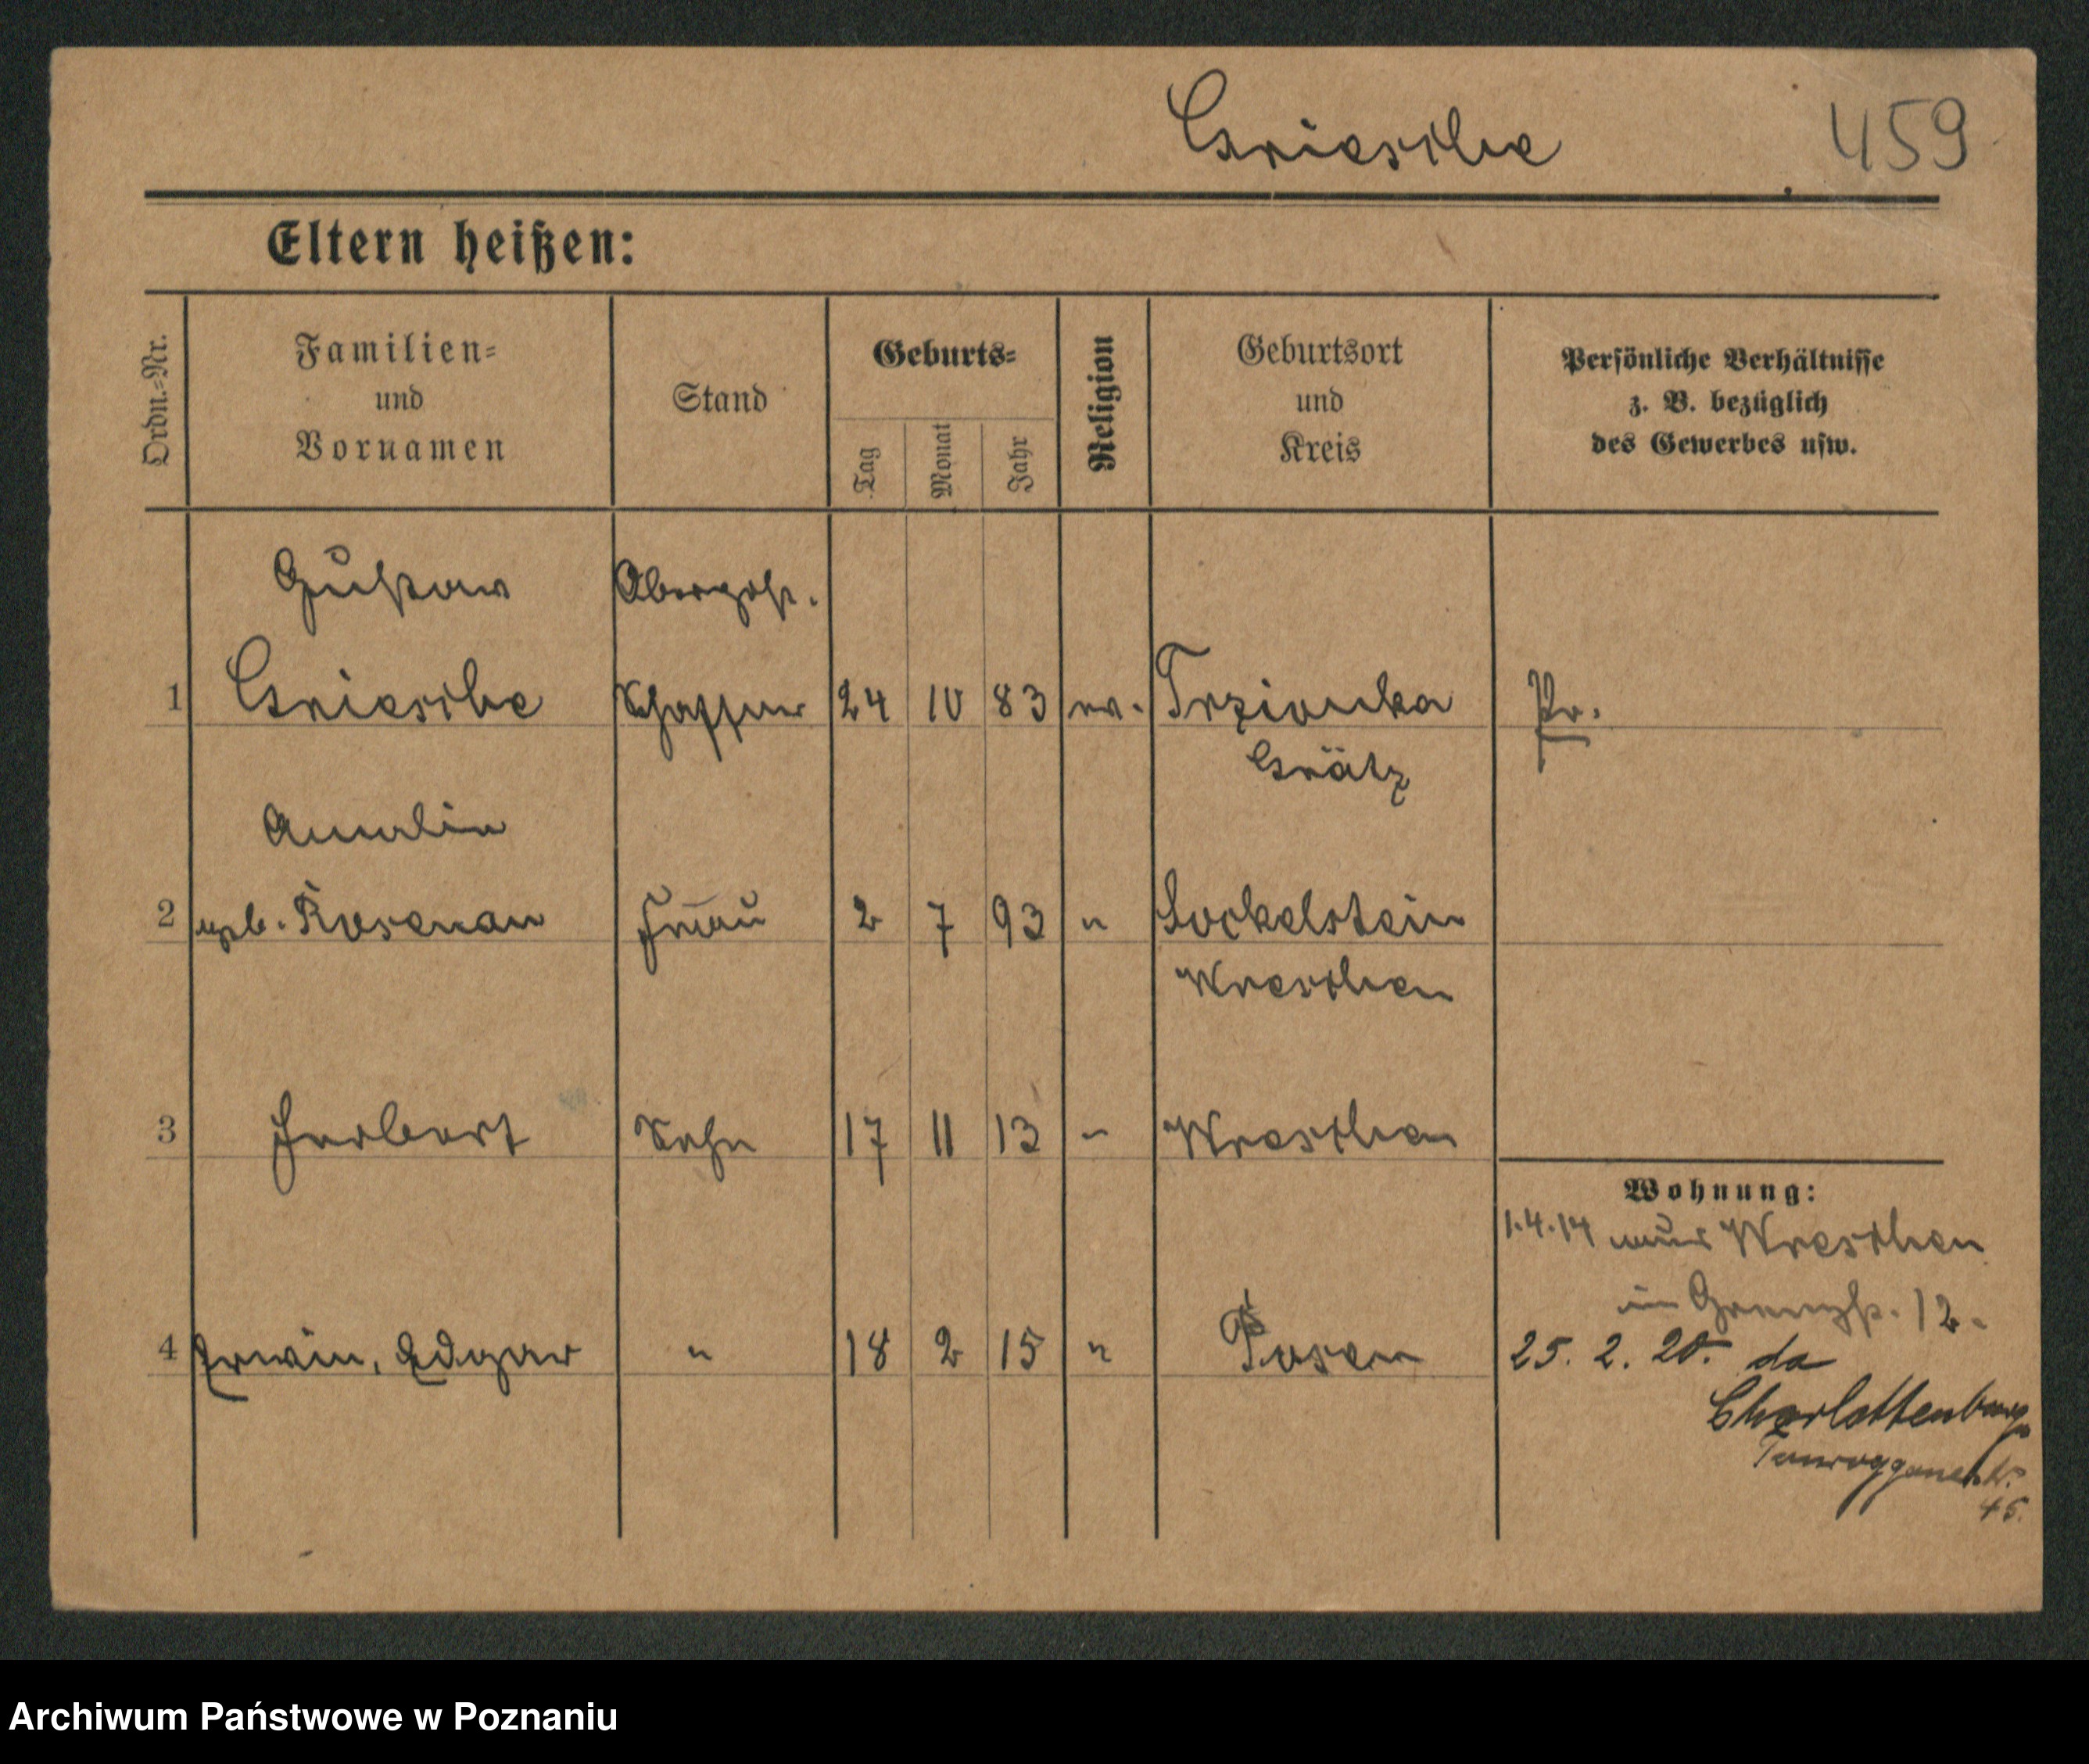 Grieschke 459
Eltern heißen:
Ordn.=Nr.
Familien=
und
Vornamen
Stand
Geburts=
Tag
Monat
Jahr
Religion
Geburtsort
und
Kreis
Persönliche Verhältnisse
z. B. bezüglich
des Gewerbes usw.
Gustav Oberpost.
1 Grieschke Schaffner 24 10 83 ev. Trzionka Pr.
Grätz
Amalie
2 geb. Rosenau Frau 2 7 93 " Sockelstein
Wreschen
3 Herbert Sohn 17 11 13 " Wreschen
Wohnung:
1.4.14 aus Wreschen
in Grenzstr. 12.
4 Erwin, Edgar " 18 2 15 " Posen
25. 2. 20. da
Charlottenburg
Tauroggenerstr.
45.
Archiwum Państwowe w Poznaniu